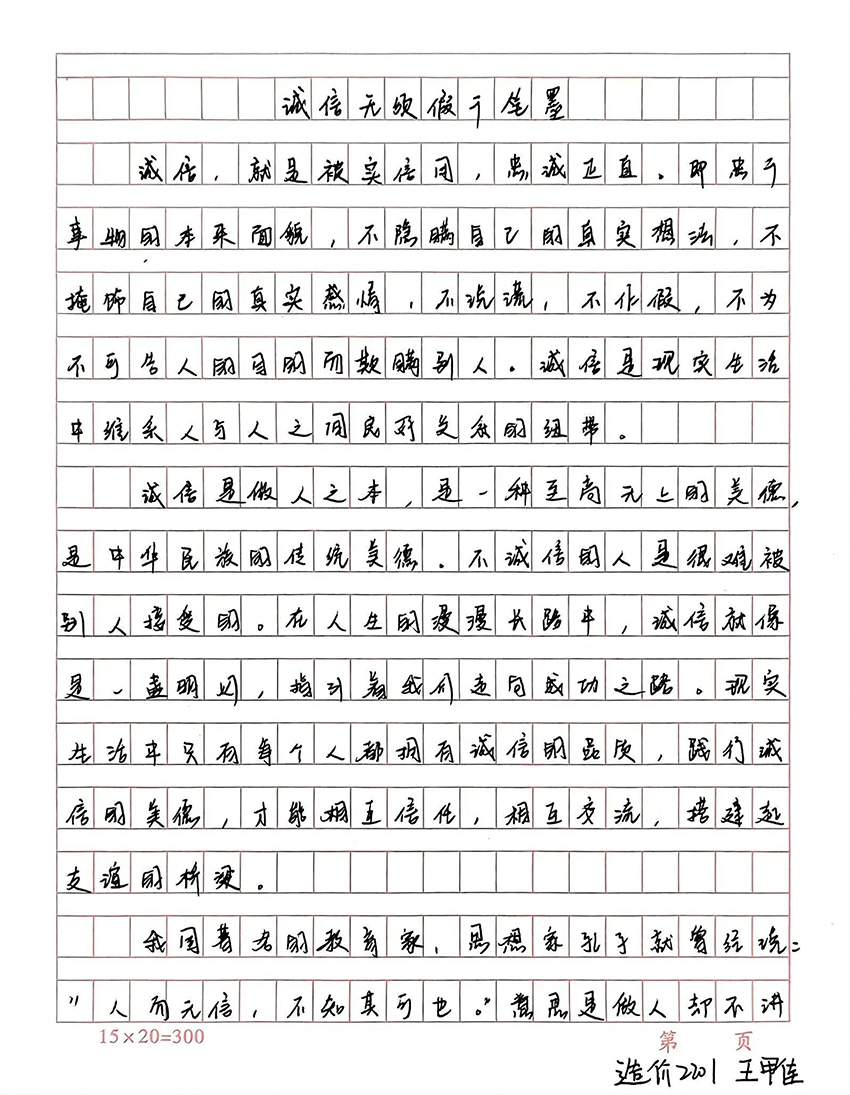 诚信无须假于笔墨
诚信，就是被实信用，忠诚正直。即忠于
事物的本来面貌，不隐瞒自己的真实想法，不
掩饰自己的真实感情，不说谎，不作假，不为
不可告人的目的而欺瞒别人。诚信是现实生活
中维系人与人之间良好交往的纽带。
诚信是做人之本，是一种至高无上的美德，
是中华民族的传统美德。不诚信的人是很难被
别人接受的。在人生的漫漫长路中，诚信就像
是一盏明灯，指引着我们走向成功之路。现实
生活中只有每个人都拥有诚信的品质，践行诚
信的美德，才能相互信任，相互交流，搭建起
友谊的桥梁。
我国著名的教育家，思想家孔子就曾经说：
"人而无信，不知其可也。"意思是做人却不讲
15×20=300 第 页
造价2201 王甲佳